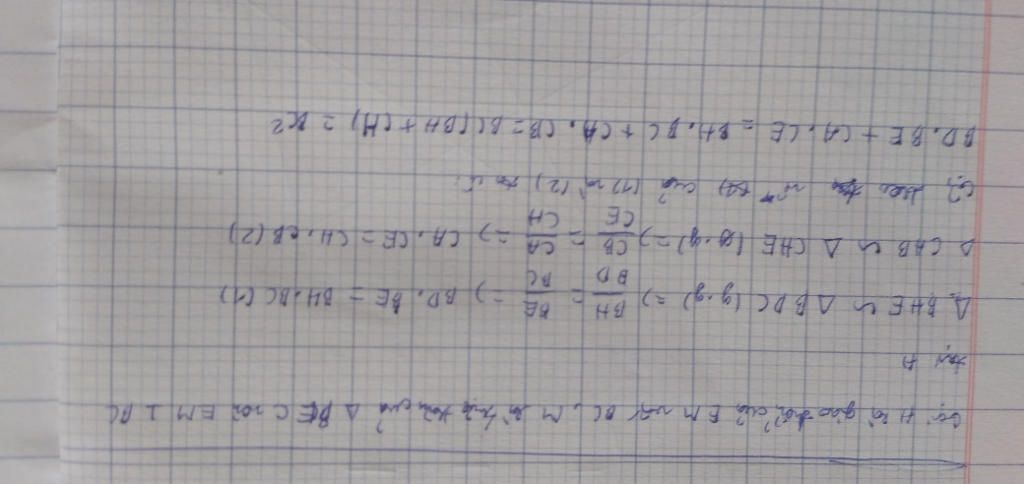 Gọi H là giao điểm của EM với BC, M là trực tâm của Δ BEC nên EM ⊥ BC
tại H
Δ BHE ∽ Δ BDC (g.g) => BH/BD = BE/BC => BD.BE = BH.BC (1)
Δ CAB ∽ Δ CHE (g.g) => CB/CE = CA/CH => CA.CE = CH.CB (2)
vế của (1) và (2) ta có:
BD.BE + CA.CE = BH.BC + CH.CB = BC(BH + CH) = BC²